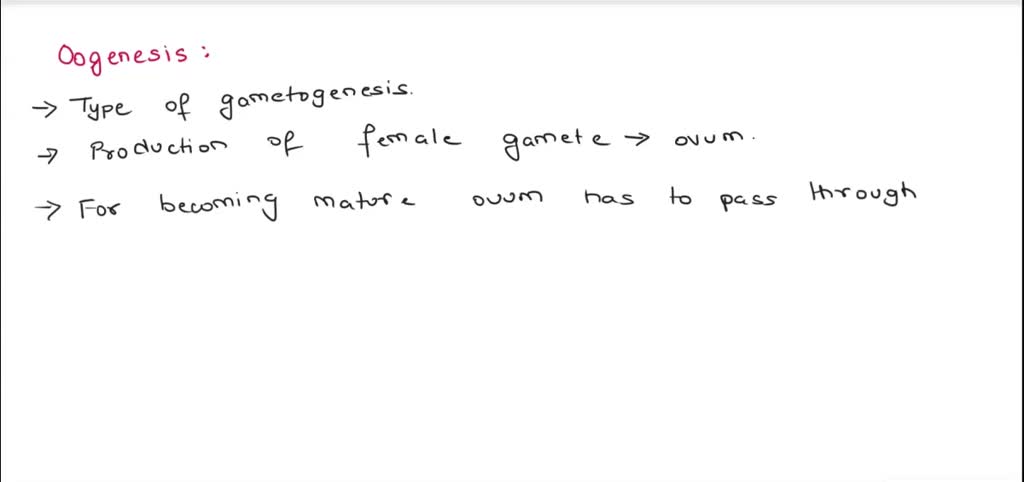 Oogenesis :
→ Type of gametogenesis.
→ Production of female gamete → ovum.
→ For becoming mature ovum has to pass through